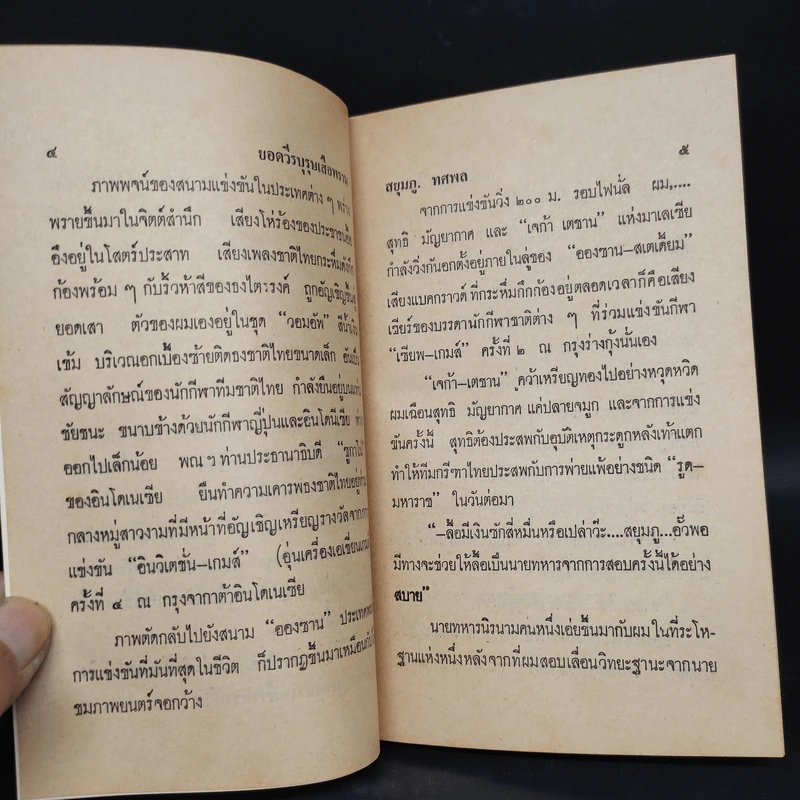 ๔
ยอดวีรบุรุษเสือพราน
ภาพพจน์ของสนามแข่งขันในประเทศต่าง ๆ
พรายขึ้นมาในจิตต์สำนึก เสียงโห่ร้องของประชาชน
อึงอยู่ในโสตร์ประสาท เสียงเพลงชาติไทยกระหึ่ม
ก้องพร้อม ๆ กับริ้วห้าสีของธงไตรรงค์ ถูกอัญเชิญขึ้นสู่
ยอดเสา ตัวของผมเองอยู่ในชุด “วอมอัพ” สีน้ำเงิน
เข้ม บริเวณอกเบื้องซ้ายติดธงชาติไทยขนาดเล็ก อันเป็น
สัญญาลักษณ์ของนักกีฬาทีมชาติไทย กำลังยืนอยู่บนแท่น
ชัยชนะ ขนาบข้างด้วยนักกีฬาญี่ปุ่นและอินโดนีเซีย
ออกไปเล็กน้อย พณฯท่านประธานาธิบดี “ซูกาโน”
ของอินโดเนเซีย ยืนทำความเคารพธงชาติไทยอยู่
กลางหมู่สาวงามที่มีหน้าที่อัญเชิญเหรียญรางวัลจากการ
แข่งขัน “อินวิเตชั่น–เกมส์” (อุ่นเครื่องเอเชี่ยนเกมส์
ครั้งที่ ๔ ณ กรุงจากาต้าอินโดเนเซีย
ภาพตัดกลับไปยังสนาม “อองซาน”
การแข่งขันที่มันที่สุดในชีวิต ก็ปรากฏขึ้นมาเหมือนกับ
ชมภาพยนตร์จอกว้าง
๕
สยุมภู. ทศพล
จากการแข่งขันวิ่ง ๒๐๐ ม. รอบไฟนั้ล ผม,....
สุทธิ มัญยากาศ และ “เจก้า เตชาน” แห่งมาเลเซีย
กำลังวิ่งกันอกตั้งอยู่ภายในลู่ของ “อองซาน–สเตเดี้ยม”
เสียงแบคกราวด์ ที่กระหึ่มกึกก้องอยู่ตลอดเวลาก็คือเสียง
เชียร์ของบรรดานักกีฬาชาติต่าง ๆ ที่ร่วมแข่งขันกีฬา
“เซียพ–เกมส์” ครั้งที่ ๒ ณ กรุงร่างกุ้งนั้นเอง
“เจก้า–เตชาน” คว้าเหรียญทองไปอย่างหวุดหวิด
ผมเฉือนสุทธิ มัญยากาศ แค่ปลายจมูก และจากการแข่ง
ขันครั้งนี้ สุทธิต้องประสพกับอุบัติเหตุกระดูกหลังเท้าแตก
ทำให้ทีมกรีฑาไทยประสพกับการพ่ายแพ้อย่างชนิด “รูด–
มหาราช” ในวันต่อมา
“–ลื้อมีเงินซักสี่หมื่นหรือเปล่าวะ....สยุมภู...อั๊วพอ
มีทางจะช่วยให้ลื้อเป็นนายทหารจากการสอบครั้งนี้ได้อย่าง
สบาย”
นายทหารนิรนามคนหนึ่งเอ่ยขึ้นมากับผม ในที่ระโห-
ฐานแห่งหนึ่งหลังจากที่ผมสอบเลื่อนวิทยะฐานะจากนาย